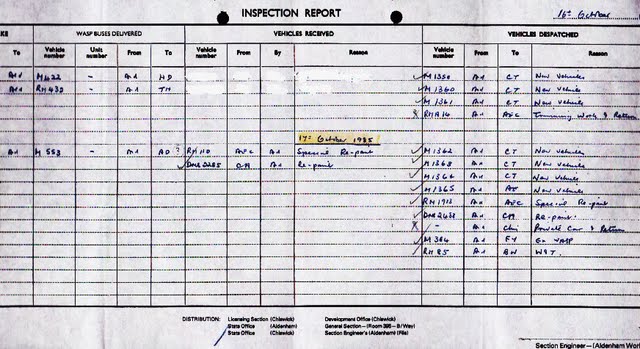 INSPECTION REPORT
16th October
KE WASP BUSES DELIVERED VEHICLES RECEIVED VEHICLES DISPATCHED
To Vehicle number Unit number From To Vehicle number From By Reason Vehicle number From To Reason
Ad M 622 - Ad HD M 1350 Ad CT New Vehicle
Ad RM 430 - Ad TH M 1360 Ad CT New Vehicle
M 1361 Ad CT New Vehicle
Ad Trimming Work & Return
17th October 1985
Ad M 553 - Ad AD ? RM 110 AFC Ad Special Re-paint M 1362 Ad CT New Vehicle
DMS 2285 CM Ad Re-paint M 1363 Ad CT New Vehicle
M 1364 Ad CT New Vehicle
M 1365 Ad New Vehicle
RM 1913 Ad AFC Special Re-paint
DMS 2438 Ad CM Re-paint
- Ad Chis Private Car & Return
M 384 Ad FY Ex WASP
RM 85 Ad BN
DISTRIBUTION: Licensing Section (Chiswick) Development Office (Chiswick)
Stats Office (Aldenham) General Section – (Room 395 – B/Way)
Stats Office (Chiswick) Section Engineer's (Aldenham) (File)
Section Engineer – (Aldenham Wor